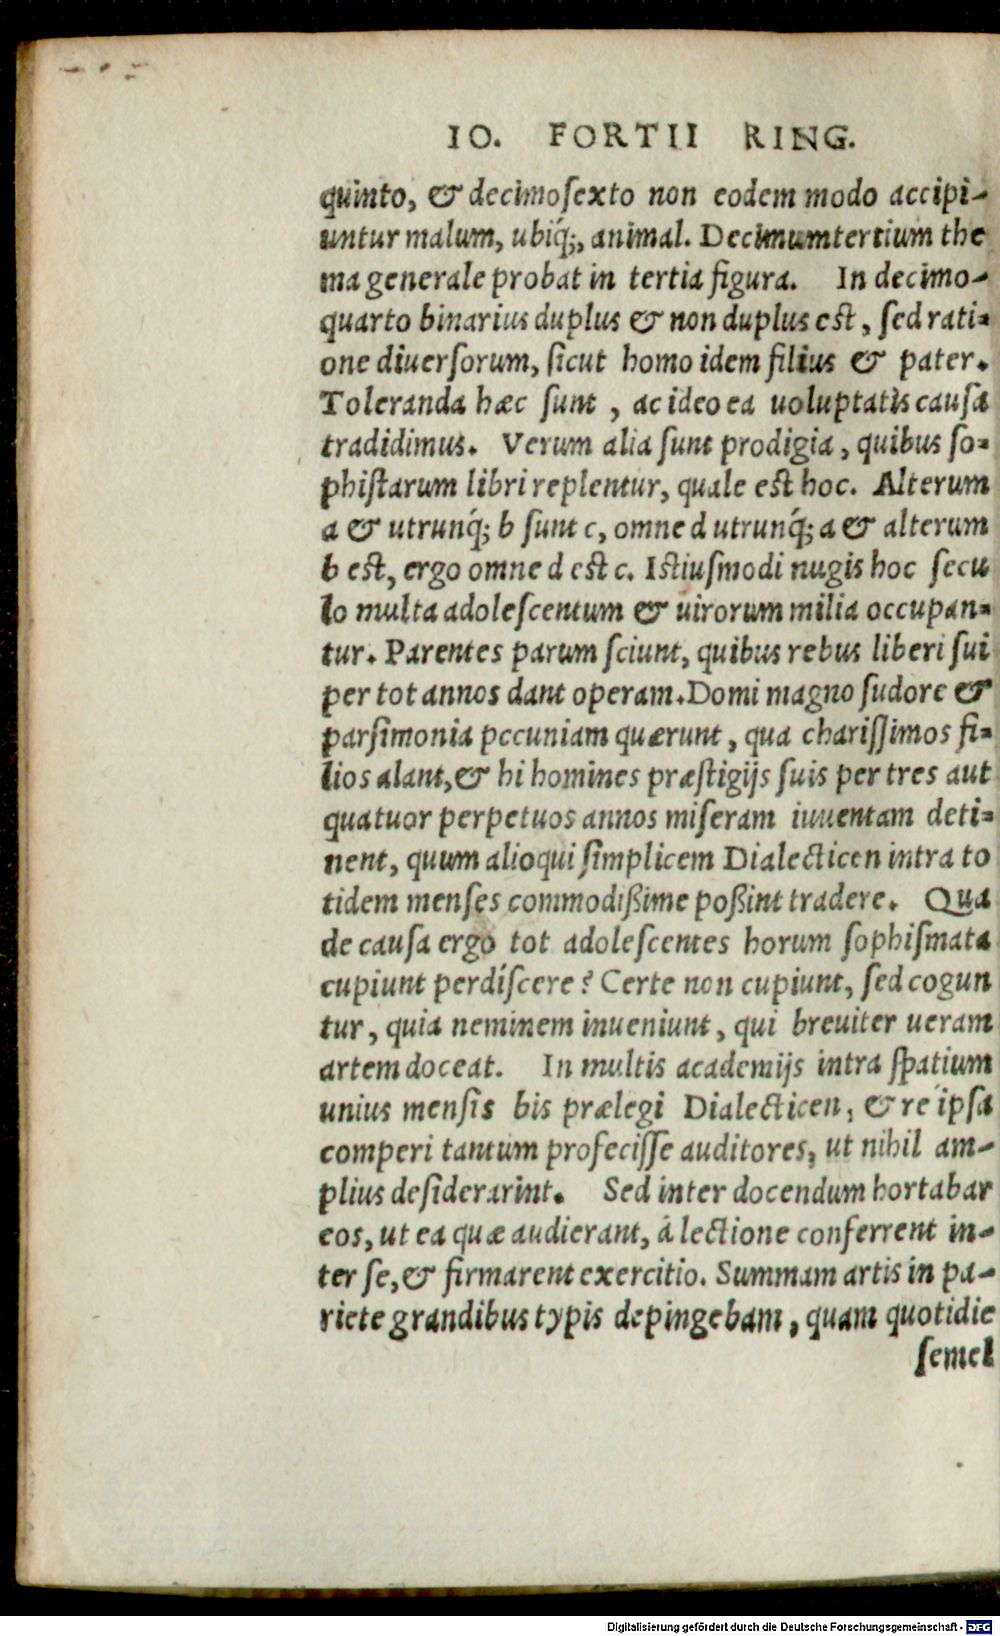 IO. FORTII RING.
quinto, & decimoſexto non eodem modo accipi-
untur malum, ubiq́;, animal. Decimumtertium the
ma generale probat in tertia figura. In decimo-
quarto binarius duplus & non duplus est, ſed rati-
one diuerſorum, ſicut homo idem filius & pater.
Toleranda hæc ſunt, ac ideo ea uoluptatis cauſa
tradidimus. Verum alia ſunt prodigia, quibus ſo-
phiſtarum libri replentur, quale est hoc. Alterum
a & utrunq́; b ſunt c, omne d utrunq́; a & alterum
b est, ergo omne d est c. Istiuſmodi nugis hoc ſecu
lo multa adoleſcentum & uirorum milia occupan-
tur. Parentes parum ſciunt, quibus rebus liberi ſui
per tot annos dant operam. Domi magno ſudore &
parſimonia pecuniam quærunt, qua chariſſimos fi-
lios alant, & hi homines præſtigijs ſuis per tres aut
quatuor perpetuos annos miſeram iuuentam deti-
nent, quum alioqui ſimplicem Dialecticen intra to
tidem menſes commodißime poßint tradere. Qua
de cauſa ergo tot adoleſcentes horum ſophiſmata
cupiunt perdíſcere? Certe non cupiunt, ſed cogun
tur, quia neminem inueniunt, qui breuiter ueram
artem doceat. In multis academijs intra ſpatium
unius menſis bis prælegi Dialecticen, & re ipſa
comperi tantum profeciſſe auditores, ut nihil am-
plius deſiderarint. Sed inter docendum hortabar
eos, ut ea quæ audierant, à lectione conferrent in-
ter ſe, & firmarent exercitio. Summam artis in pa-
riete grandibus typis depingebam, quam quotidie
ſemel
Digitalisierung gefördert durch die Deutsche Forschungsgemeinschaft - DFG